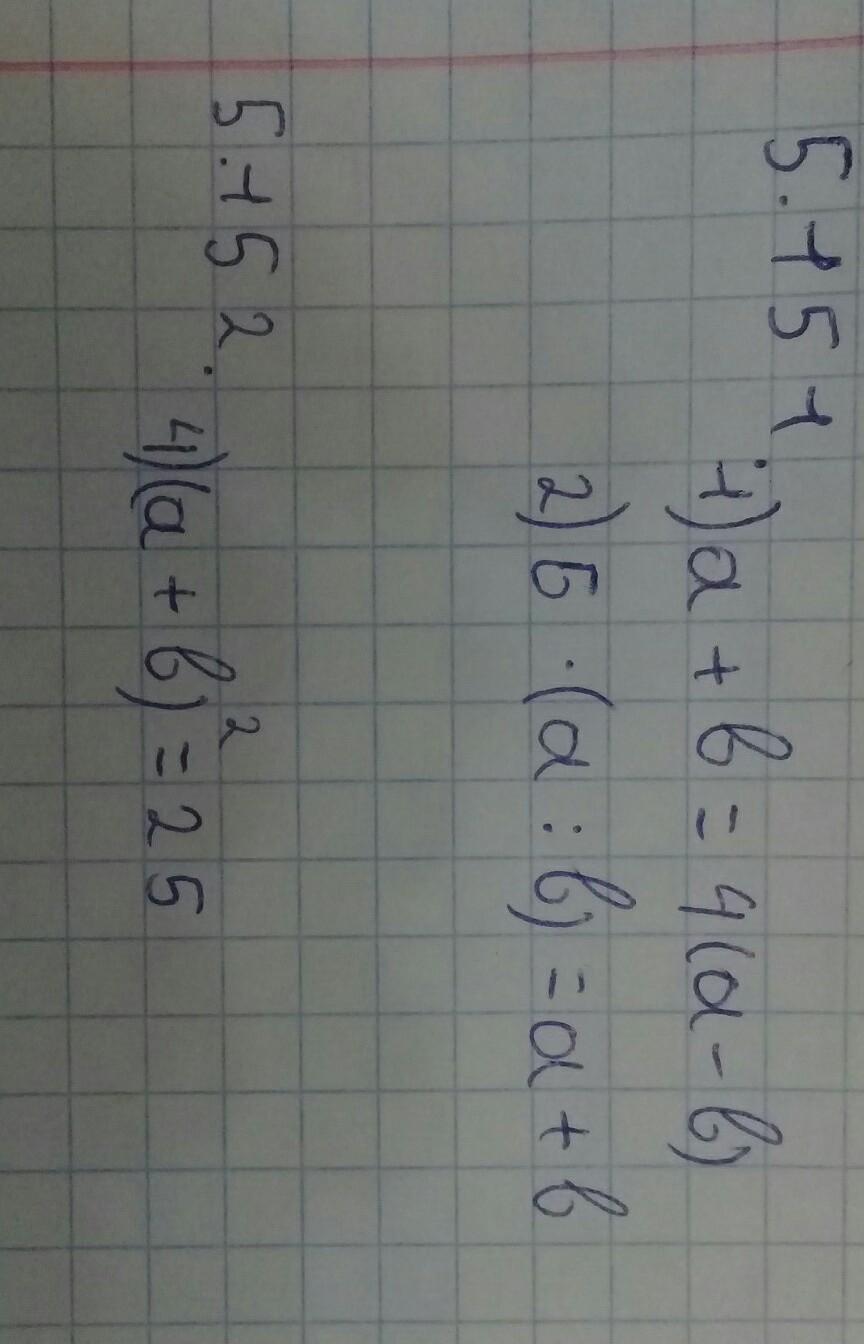 5.151. 1) a + b = 4(a - b)
2) 5 · (a : b) = a + b
5.152. 4) (a + b)² = 25